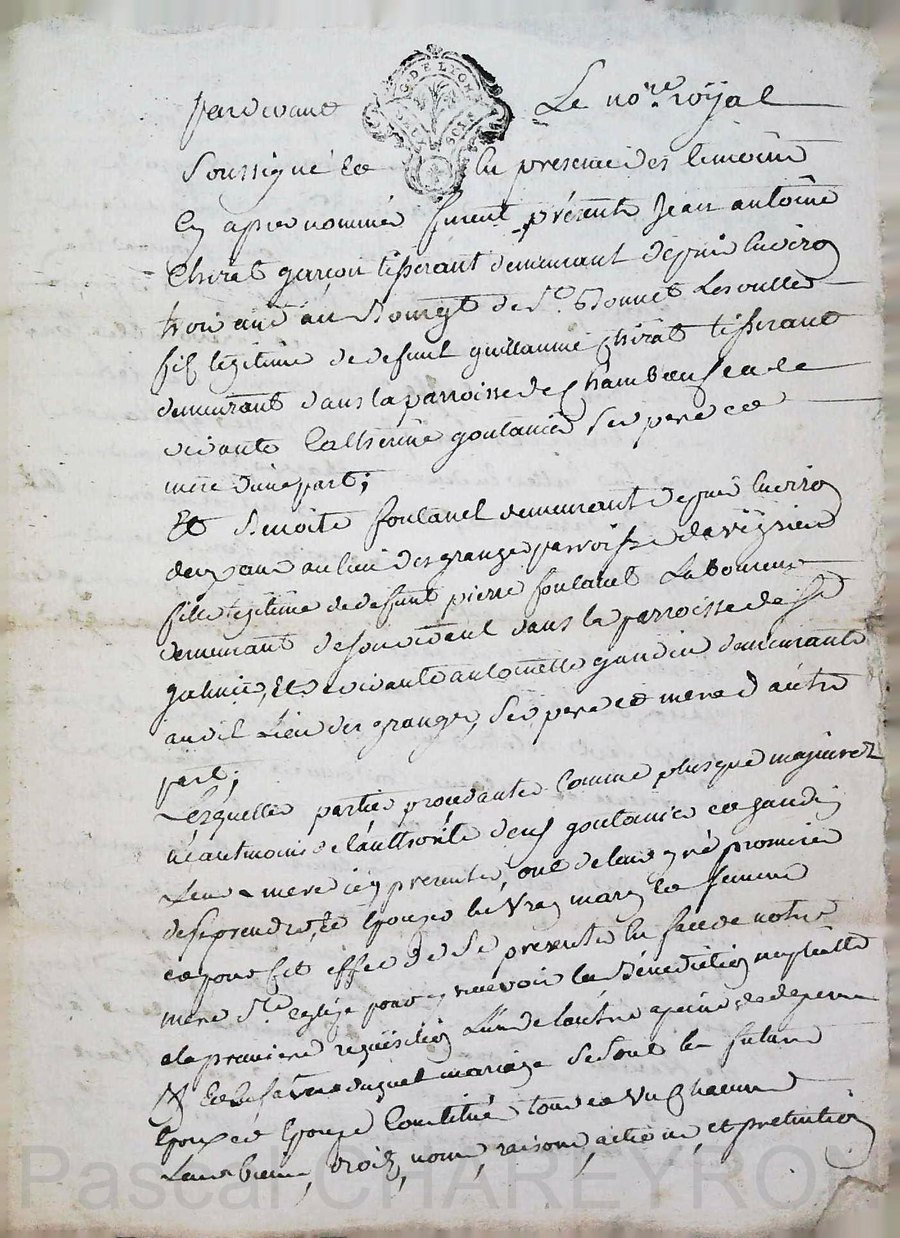 G. DE LYON
DEUX SOLS
Pardevant Le no.re royal
Soussigné et En presence des temoins
Cy apres nommés furent présents Jean antoine
Chirat garçon tisserant demeurant depuis Environ
trois ans au Bourgt de St. Bonnet Les oulles
fils legitime de defunt guillaume Chirat tisserant
demeurant dans la parroisse de Chambœuf et de
vivante Catherine goutanier ses pere et
mere d'une part;
Et Benoite foulanel demeurant depuis Environ
deux ans au lieu des granges parroisse de
fille legitime de defunt pierre foulanel Laboureur
demeurant de son vivant dans la parroisse de St
galmier, Et de vivante antoinette gandin demeurante
audit Lieu des granges, ses pere et mere d'autre
part;
Lesquelles parties procedantes comme plus que majeures
néautmoins de l'authorité des goutanier et gandin
Leurs meres icy presentes, ont de leur gré promis
de se prendre et Epouser En vray mary et femme
et pour cet effet de se presenter En face de notre
mere Ste église pour y recevoir la Bénédiction nuptialle
a la premiere requisition L'un de l'autre a peine de depens
Et En faveur duquel mariage se sont les futurs
Epoux et Epouse Constitué tous et un chacuns
Leurs biens, droits, noms, raisons, actions, et pretentions
Pascal CHAREYRON